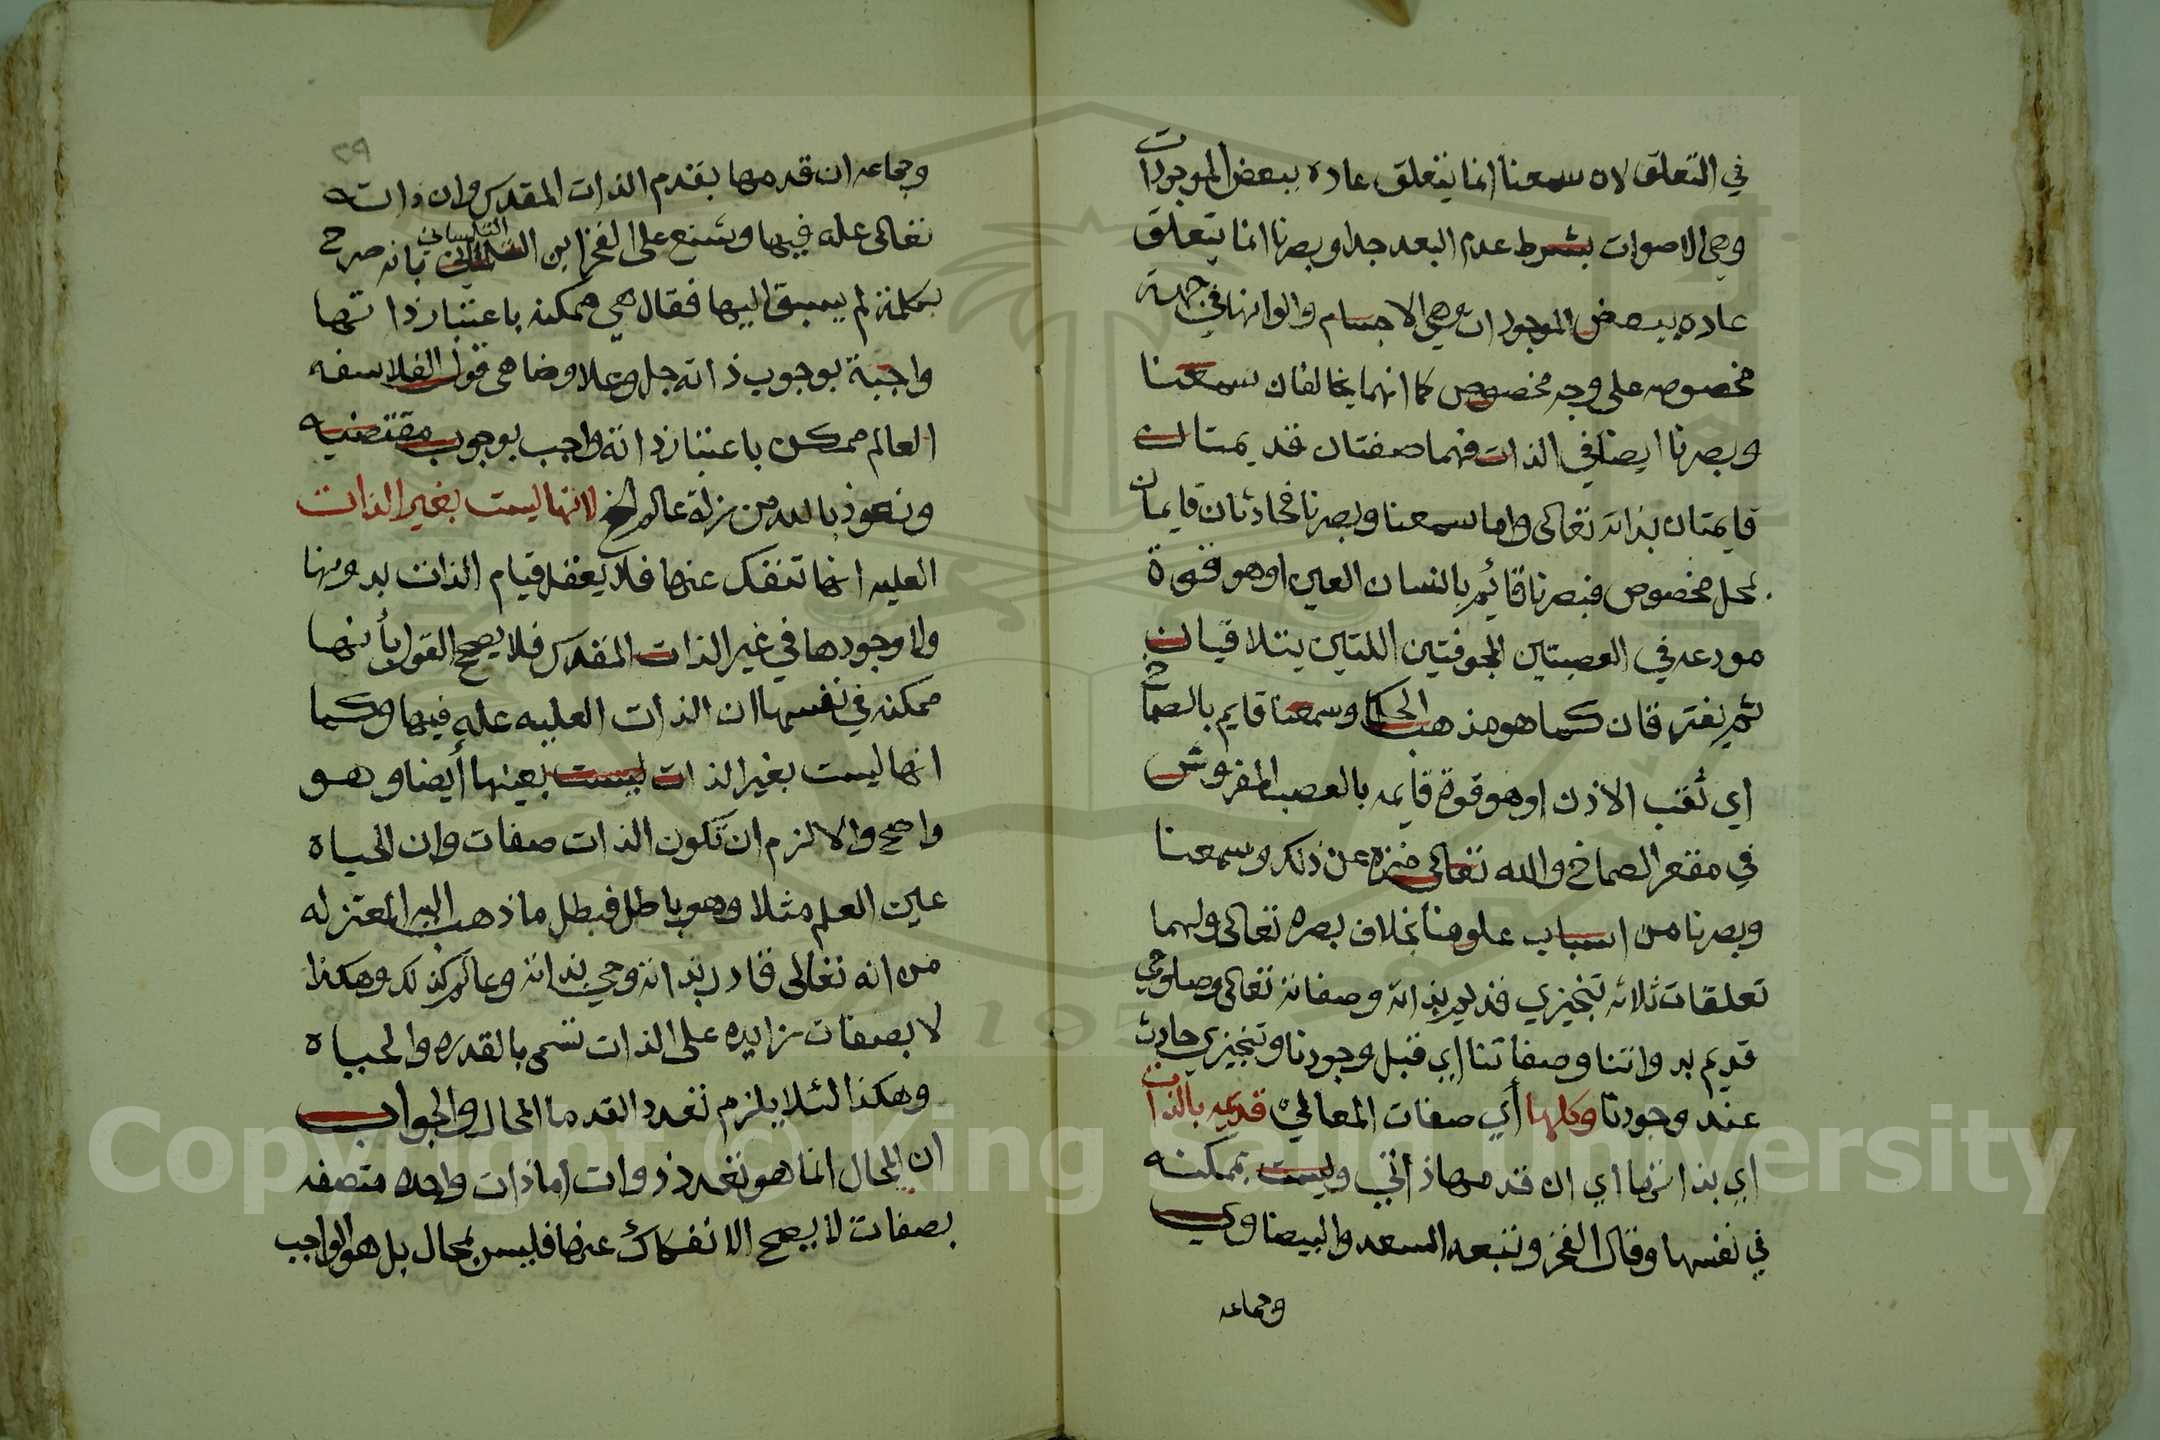 في التعلق لان سمعنا انما يتعلق عادة ببعض الموجودات
وهي الاصوات بشرط عدم البعد جدا وبصرنا انما يتعلق
عادة ببعض الموجودات وهي الاجسام والوانها في جهة
مخصوصه على وجه مخصوص كما انهما يخالفان سمعنا
وبصرنا ايضا في الذات فهما صفتان قديمتان
قايمتان بذاته تعالى واما سمعنا وبصرنا فحادثان قايمان
بمحل مخصوص فبصرنا قائم بانسان العين او هو قوة
مودعه في العصبتين المجوفتين اللتين يتلاقيان
ثم يفترقان كما هو مذهب الحكما وسمعنا قايم بالصماخ
اي ثقب الاذن او هو قوة قايمه بالعصب المفروش
في مقعر الصماخ والله تعالى منزه عن ذلك وسمعنا
وبصرنا من اسباب علومنا بخلاف بصره تعالى ولهما
تعلقات ثلاثه تنجيزي قديم بذاته وصفاته تعالى وصلوحي
قديم بذواتنا وصفاتنا اي قبل وجودنا وتنجيزي حادث
عند وجودنا وكلها أي صفات المعاني قديمه بالذات
اي بذاتها اي ان قدمها ذاتي وليست بممكنه
في نفسها وقال الفخر وتبعه السعد والبيضاوي
وجماعه
٢٩
وجماعه ان قدمها بقدم الذات المقدس وان ذاته
تعالى علة فيها وشنع على الفخر ابن التلمساني بانه صرح
بكلمة لم يسبق اليها فقال هي ممكنه باعتبار ذاتها
واجبة بوجوب ذاته جل وعلا وضاهى قول الفلاسفه
العالم ممكن باعتبار ذاته واجب بوجوب مقتضيه
ونعوذ بالله من زلة عالم الخ لانها ليست بغير الذات
العليه انها تنفك عنها فلا يعقل قيام الذات بدونها
ولا وجودها في غير الذات المقدس فلا يصح القول بأنها
ممكنه في نفسها ان الذات العليه علة فيها وكما
انها ليست بغير الذات ليست بعينها أيضا وهو
واضح والا لزم ان تكون الذات صفات وان الحياة
عين العلم مثلا وهو باطل فبطل ما ذهب اليه المعتزله
من انه تعالى قادر بذاته وحي بذاته وعالم كذلك وهكذا
لا بصفات زايده على الذات تسمى بالقدره والحياة
وهكذا لئلا يلزم تعدد القدما المحال والجواب
ان المحال انما هو تعدد ذوات اما ذات واحده متصفه
بصفات لا يصح الانفكاك عنها فليس بمحال بل هو الواجب
Copyright © King Saud University